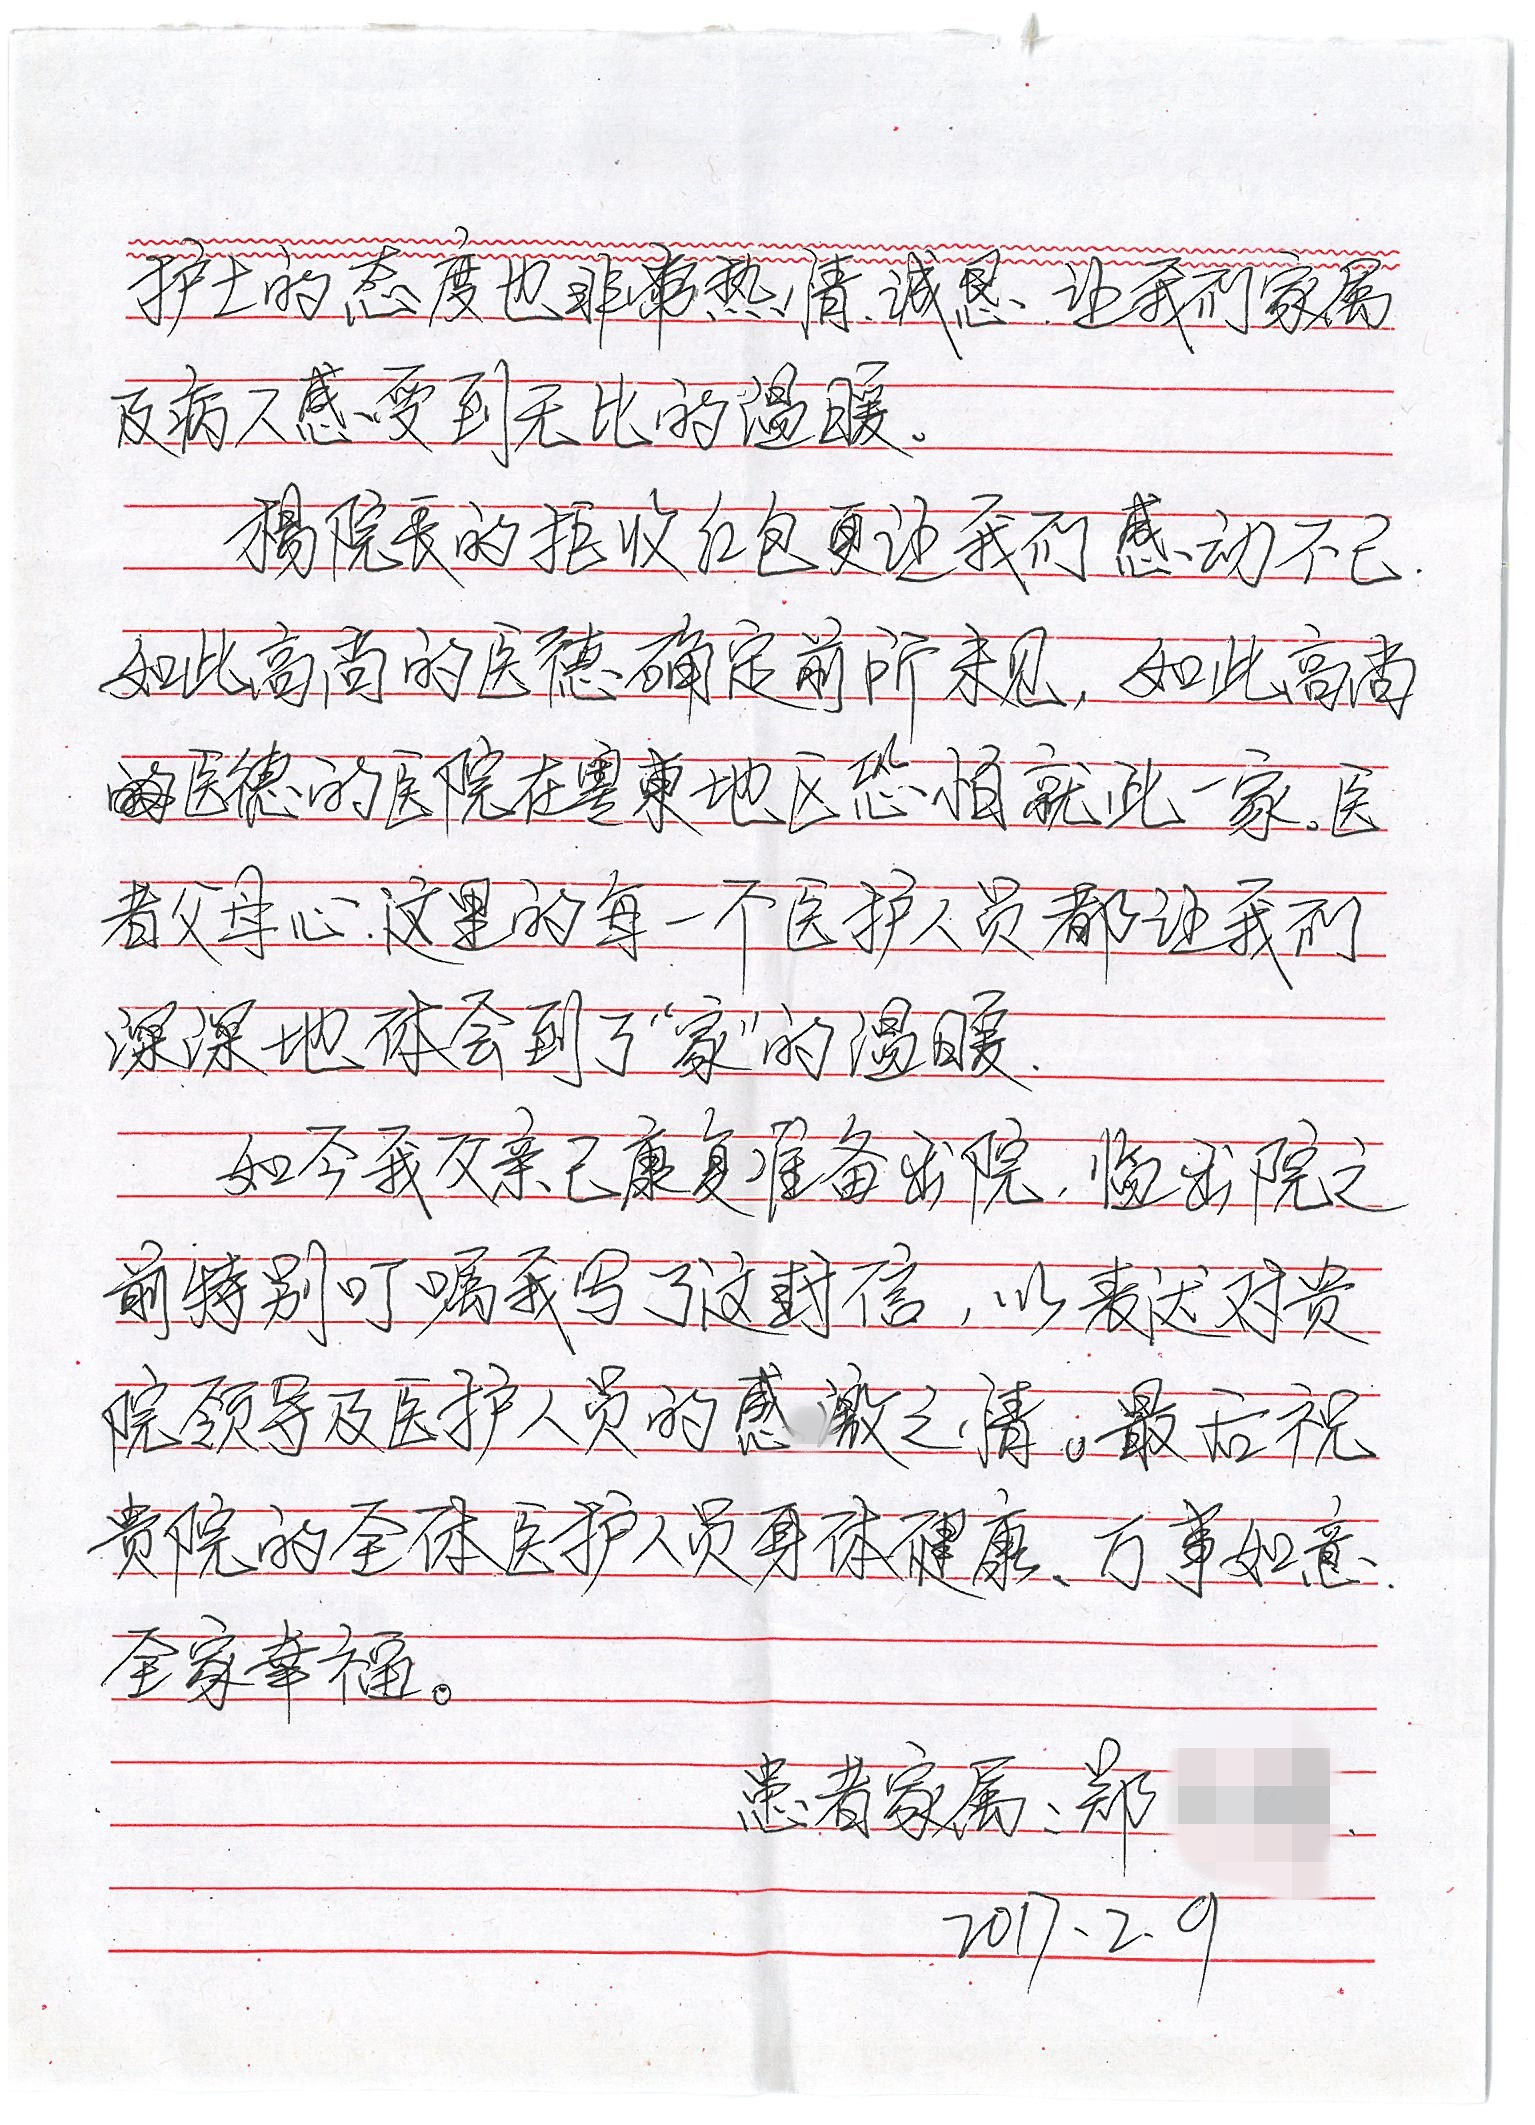 护士的态度也非常热情、诚恳.让我们家属
及病人感受到无比的温暖。
杨院长的拒收红包更让我们感动不已.
如此高尚的医德确定前所未见，如此高尚
的医德的医院在粤東地区恐怕就此一家。医
者父母心.这里的每一个医护人员都让我们
深深地体会到了“家”的温暖.
如今我父亲已康复准备出院，临出院之
前特别叮嘱我写了这封信，以表达对贵
院领导及医护人员的感激之情。最后祝
贵院的全体医护人员身体健康、万事如意.
全家幸福。
患者家属：郑
2017.2.9